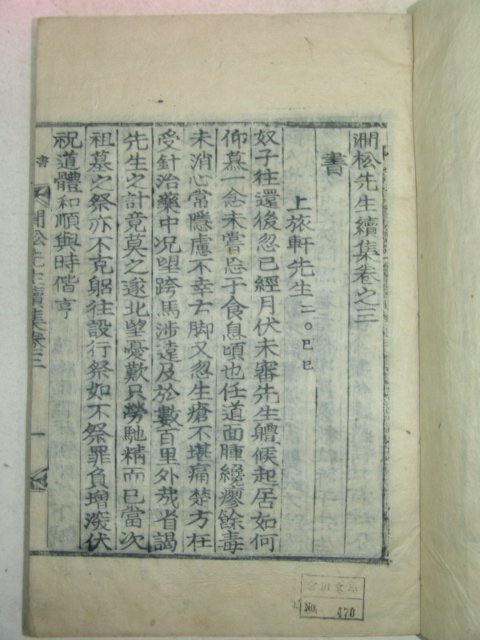 澗松先生續集卷之三
書
上旅軒先生 二○己巳
奴子往還後忽已經月伏未審先生軆候起居如何
仰慕一念未嘗忘于食息頃也任道面腫纔瘳餘毒
未消心常隱慮不幸右脚又忽生瘡不堪痛楚方在
受針治藥中况望跨馬涉遠及於數百里外哉省謁
先生之計竟莫之遂北望憂歎只勞馳精而已當次
祖墓之祭亦不克躬往設行祭如不祭罪負增深伏
祝道體和順與時偕亨
書 澗松先生續集卷三 一
NO. 470